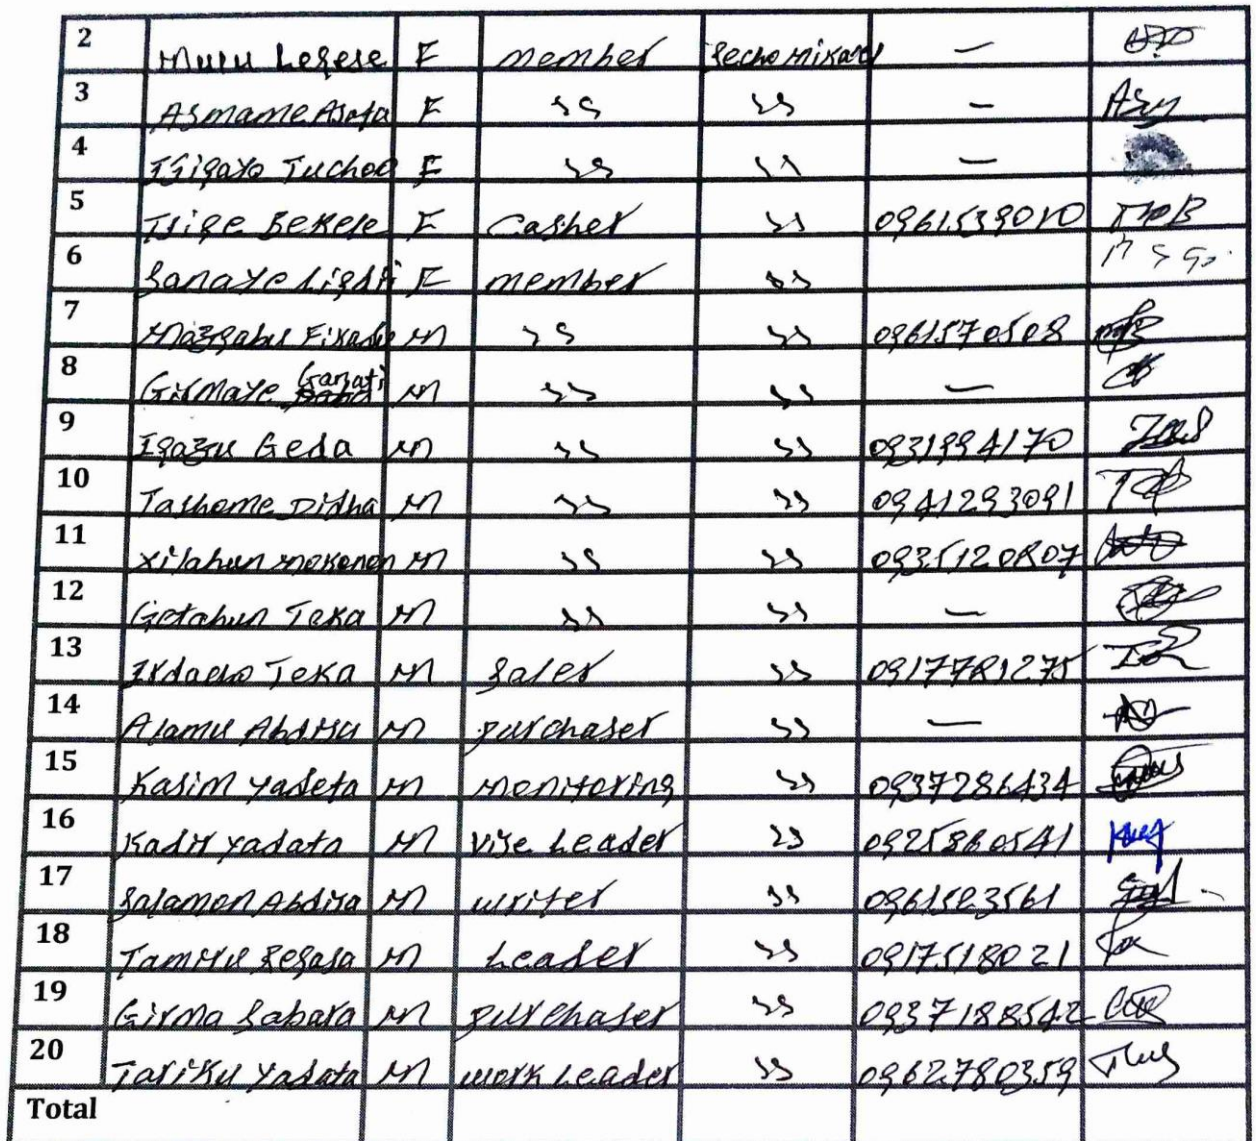 2 Mulu Legese F member Secho Mikael —
3 Asmame Asefa F " " —
4 Tsigayo Tuchoo F " " —
5 Tsige Bekele F Casher " 0961539010
6 Sanayo F member "
7 Fikadu M " " 0961570508
8 Girmaye Ganati M " " —
9 Igazu Geda M " " 0931994170
10 Tashome Didha M " " 0941293091
11 Xilahun mokonon M " " 0935120807
12 Getahun Teka M " " —
13 Teka M Saler " 0917781275
14 Alamu Abdisa M purchaser " —
15 Kasim Yadeta M monitoring " 0937286434
16 Kadir Yadata M Vise Leader " 0925860541
17 Salamon Abdisa M writer " 0961523561
18 Tamiru Regasa M Leader " 0917518021
19 Girma Sabara M purchaser " 0937188542
20 Tariku Yadata M work Leader " 0962780359
Total